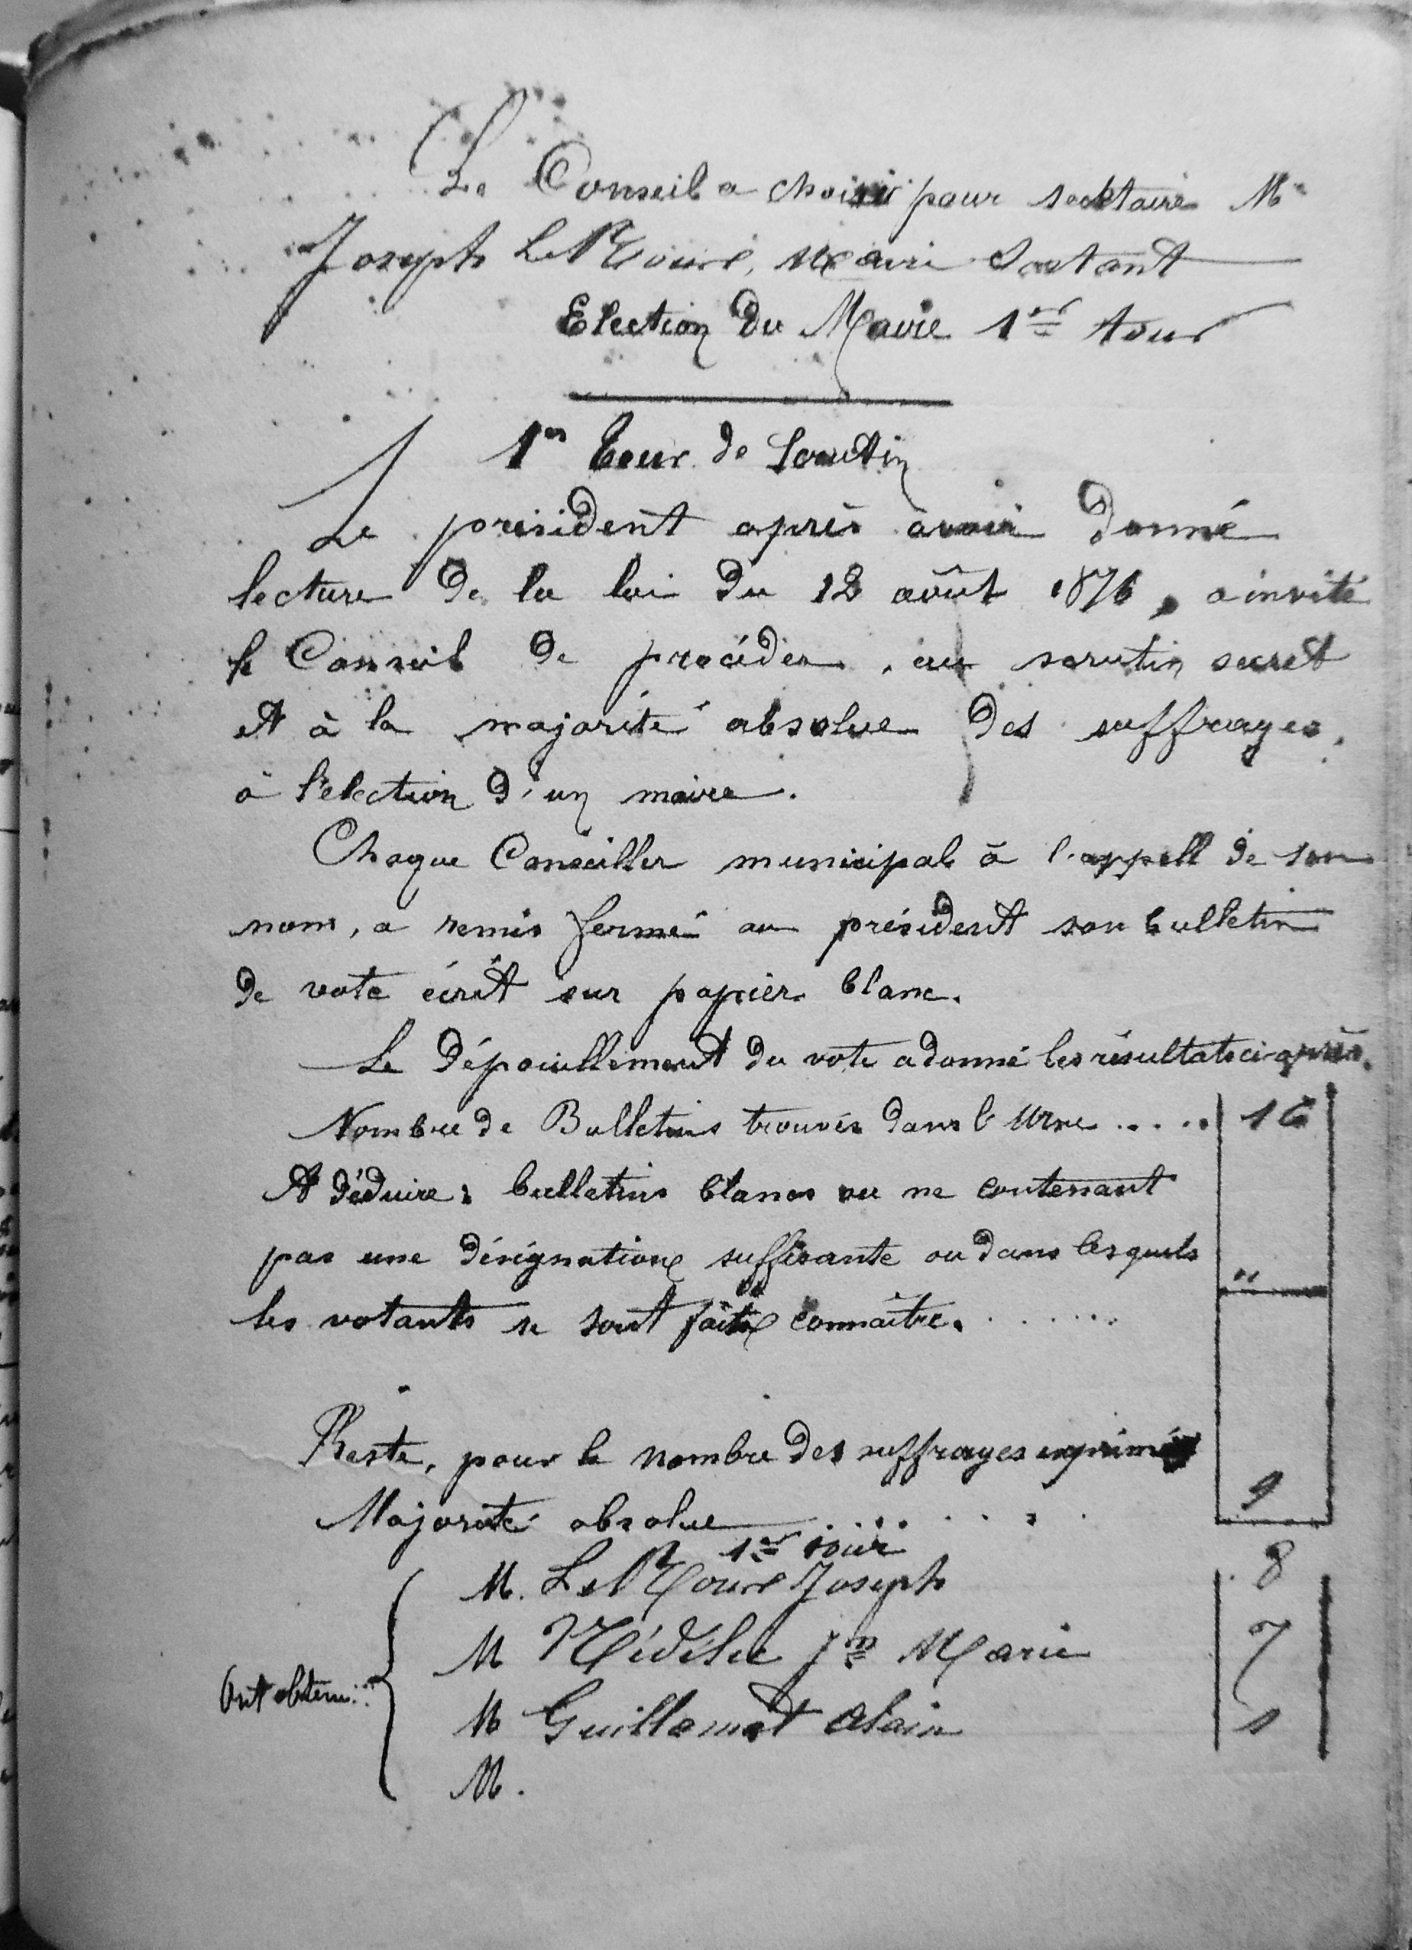 Le Conseil a choisi pour secrétaire Mr
Joseph Le Roux, Maire Sortant
Election du Maire 1er tour
1er tour de Scrutin
Le président après avoir donné
lecture de la loi du 12 août 1876, a invité
le Conseil de procéder, au scrutin secret
et à la majorité absolue des suffrages,
à l'élection d'un maire.
Chaque Conseiller municipal à l'appell de son
nom, a remis fermé au président son bulletin
de vote écrit sur papier blanc.
Le dépouillement du vote a donné les résultats ci-après.
Nombre de Bulletins trouvés dans l'Urne ..... 16
A déduire: bulletins blancs ou ne contenant
pas une désignation suffisante ou dans lesquels "
les votants se sont faits connaître. . . . . . .
Reste, pour le nombre des suffrages exprimés
Majorité absolue . . . . . . . 9
1er tour
M. Le Roux Joseph 8
M Nédélec Jn Marie 7
Ont obtenu:
M Guillemot Alain 1
M.